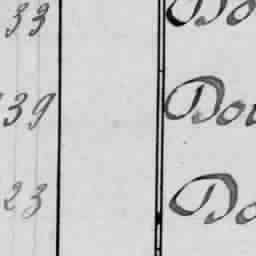 33 Do
39 Dou
23 Do